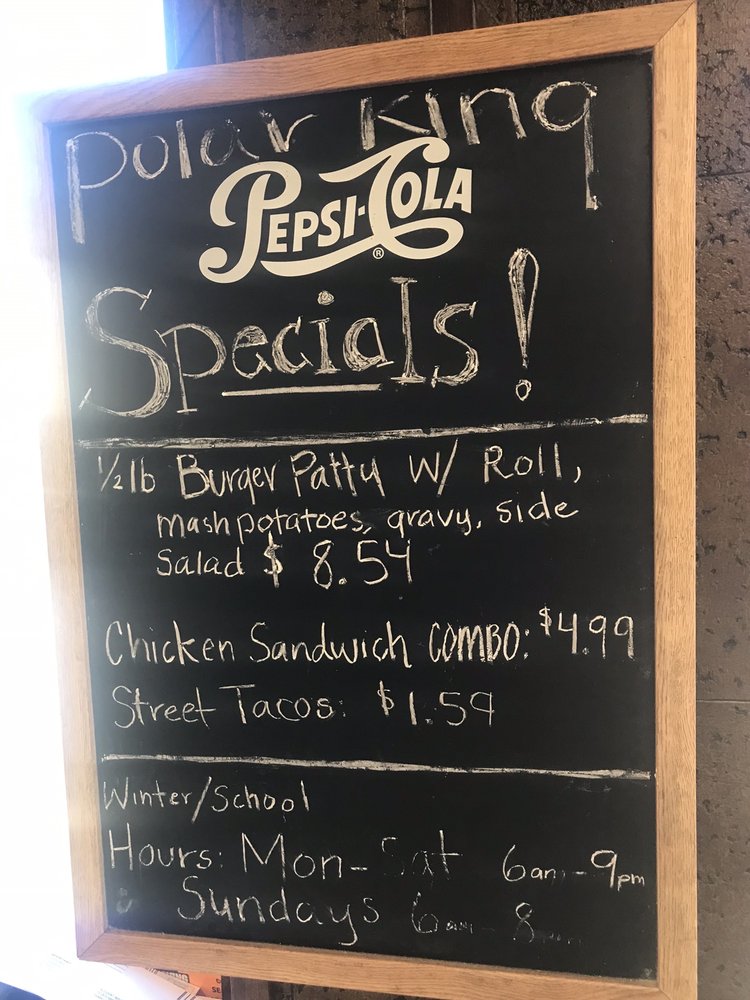 Polar King
PEPSI-COLA®
Specials!
1/2 lb Burger Patty w/ Roll,
mash potatoes, gravy, side
Salad $ 8.54
Chicken Sandwich COMBO: $4.99
Street Tacos: $1.59
Winter/School
Hours: Mon-Sat 6am-9pm
Sundays 6am-8pm